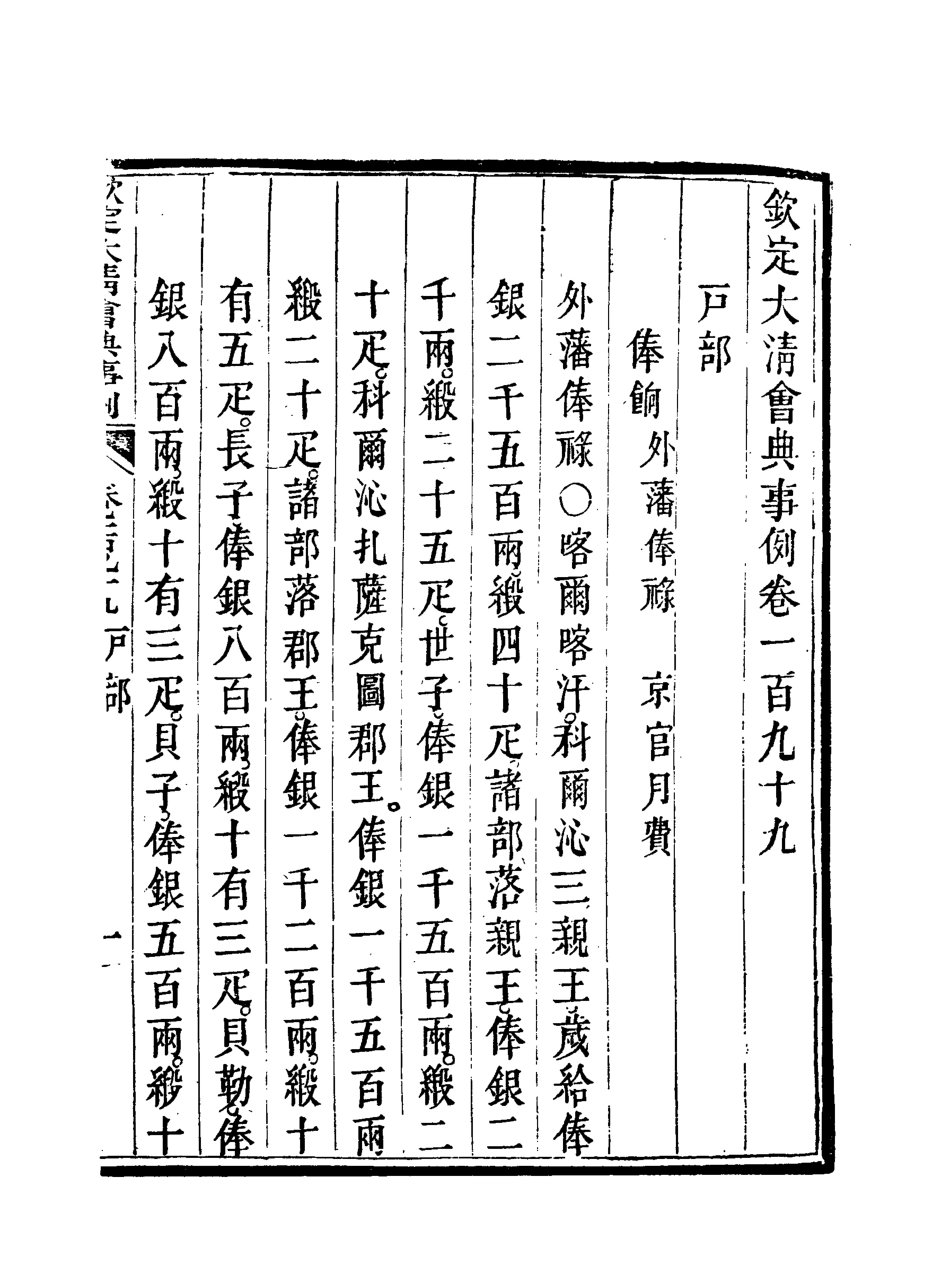 欽定大清會典事例卷一百九十九
戸部
俸餉 外藩俸祿 京官月費
外藩俸祿○喀爾喀汗。科爾沁三親王。歲給俸
銀二千五百兩。緞四十疋。諸部落親王。俸銀二
千兩。緞二十五疋。世子。俸銀一千五百兩。緞二
十疋。科爾沁扎薩克圖郡王。俸銀一千五百兩
緞二十疋。諸部落郡王。俸銀一千二百兩。緞十
有五疋。長子。俸銀八百兩。緞十有三疋。貝勒。俸
銀八百兩。緞十有三疋。貝子。俸銀五百兩。緞十
欽定大清會典事例 卷一百九十九 戸部 一